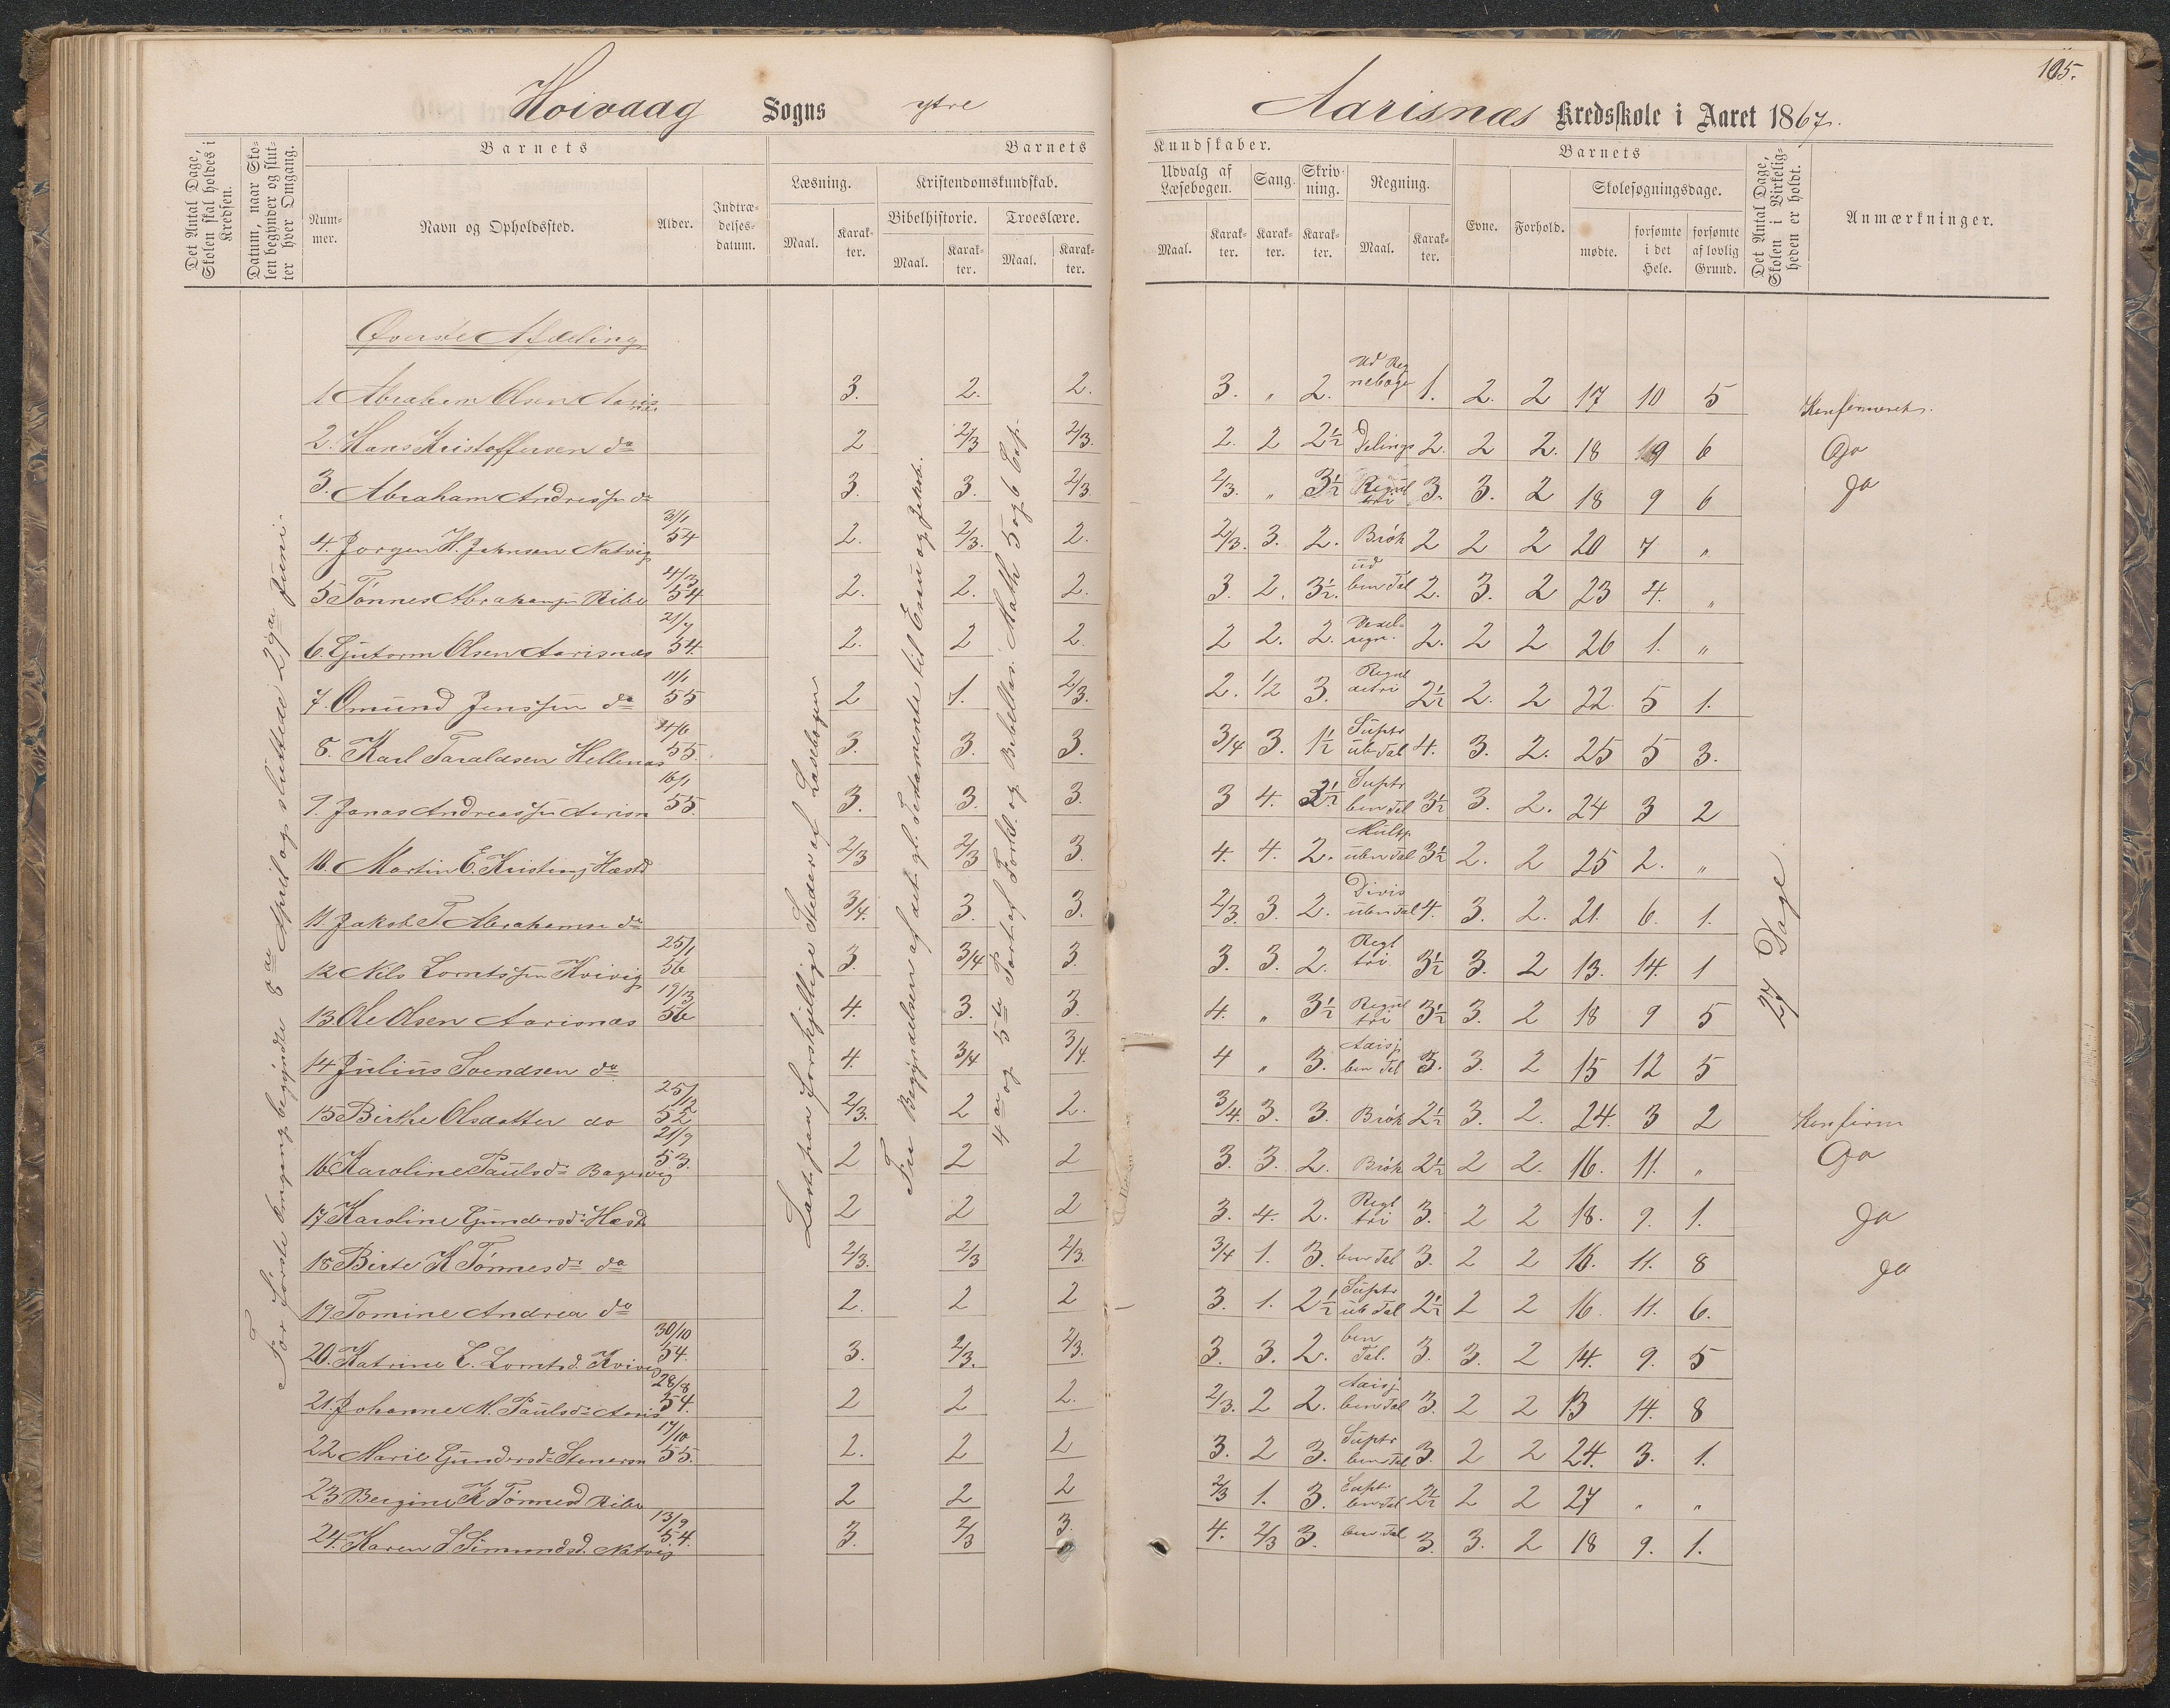 105.
Hoivaag Sogns ytre Aarisnæs Kredsskole i Aaret 1867.
Det Antal Dage, Skolen skal holdes i Kredsen.
Datum, naar Skolen begynder og slutter hver Omgang.
Barnets
Nummer.
Navn og Opholdssted.
Alder.
Indtrædelsesdatum.
Barnets Kundskaber.
Læsning.
Maal.
Karakter.
Kristendomskundskab.
Bibelhistorie.
Maal.
Karakter.
Troeslære.
Maal.
Karakter.
Udvalg af Læsebogen.
Maal.
Karakter.
Sang.
Karakter.
Skrivning.
Karakter.
Regning.
Maal.
Karakter.
Barnets
Evne.
Forhold.
Skolesøgningsdage.
mødte.
forsømte i det Hele.
forsømte af lovlig Grund.
Det Antal Dage, Skolen i Virkeligheden er holdt.
Anmærkninger.
For første Omgang begyndte 8de April og sluttede 29de Juni.
Læst paa forskjellige Steder af Læsebogen
Fra Begyndelsen af det gl. Testamente til Esau og Jakob.
4de og 5te Part af Forkl. og Bibellæs. Math 5 og 6 Cap.
27 Dage
Øverste Afdeling
1 Abraham Olsen Aarisnæs 3. 2. 2. 3. " 2. Ud Regnebogen 1. 2. 2 17 10 5 Konfirmeret.
2. Hans Kristoffersen do 2 2/3 2/3. 2. 2 2½ Delings 2. 2 2. 18 9 6 Do
3. Abraham Andressen do 3. 3. 2/3 2/3. " 3½ Regul tri 3. 3. 2 18 9 6 Do
4. Jorgen H. Johnsen Natvig 31/1 54 2. 2/3. 2. 2/3. 3. 2. Brøk 2 2 2 20 7 "
5 Tønnes Abrahamsen Ribe 4/3 54 2. 2. 2. 3. 2. 3½. ud ben Tal 2. 3. 2 23 4. "
6. Gutorm Olsen Aarisnæs 21/7 54. 2. 2 2. 2 2. 2. 2. 2 2 26 1. "
7. Omund Jenssen do 11/1 55 2 1. 2/3. 2. 1/2 3. Regul detri 2½ 2. 2 22 5 1.
8. Karl Taraldsen Hellenæs 4/6 55. 3. 3. 3. 3/4 3. 1½ Suptr ub Tal 4. 3. 2. 25 5 3.
9. Jonas Andreassen Aarisn 16/1 55. 3. 3. 3. 3 4. 2½ Suptr ben Tal 3½ 3. 2. 24 3 2
10. Martin E. Kristens Hæstd 2/3 2/3 3. 4. 4. 2. Multp. uben Tal 3½ 2. 2 25 2. "
11 Jakob T Abrahamsn do 3/4. 3. 3. 2/3. 3. 2. Divis uben Tal 4. 3. 2. 21. 6. 1.
12 Nils Lorntssen Kvivig 25/1 56 3. 3/4 3. 3. 3. 2. Regl tri 3½ 3. 2 13. 14. 1
13 Ole Olsen Aarisnæs 19/3 56 4. 3. 3. 4. " 3½ Regul tri 3½ 3. 2 18 9 5
14 Julius Svendsen do 4. 3/4 3/4. 4 " 3. Adisj ben Tal 3. 3. 2 15 12 5
15 Birthe Olsdatter do 25/12 52 2/3. 2 2. 3/4. 3. 3. Brøk 2½ 3. 2. 24. 3 2 Konfirm
16 Karoline Paulsd. 21/9 53. 2 2 2 3. 3. 2. Brøk 2½ 2 2. 16. 11. " Do
17 Karoline Gundersd. Hæstd 2 2 2 3. 4. 2. Regl tri 3. 2 2 18. 9. 1. Do
18 Birte K Tønnesd. do 2/3. 2/3 2/3. 3/4 1. 3. ben Tal 3. 2 2 16. 11. 8 Do
19. Tomine Andrea do 2. 2 2 3. 1. 2½ Suptr ub Tal 2½ 2 2 16. 11. 6.
20. Katrine L. Lorntsd. Kvivig 30/10 54. 3. 2/3. 2/3. 3. 3. 2. ben Tal. 3. 3. 2 14. 9. 5
21. Johanne M. Paulsd. Aaris 28/8 54. 2 2 2. 2/3. 2 2. Adisj ben Tal 3. 2 2 13 14. 8
22 Marie Gundersd. 17/10 55. 2. 2 2 3. 2 3. Suptr ben Tal 3. 2 2 24. 3. 1.
23 Bergine K Tønnesd Ribe 2 2 2 2/3 1. 3. Supt ben Tal 2½ 2 2 27 " "
24. Karen S Simundsd. Natvig 13/9 54. 3. 2/3 3. 4. 2/3 3. ben Tal 3. 3. 2 18 9. 1.